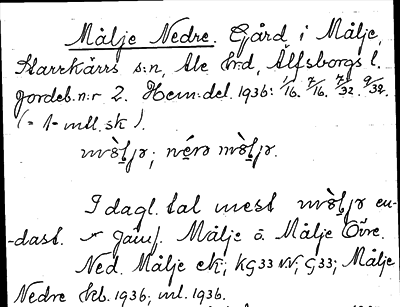 Målje Nedre. Gård i Målje,
Starrkärrs s:n, Ale hrd, Älfsborgs l.
Jordeb.n:r 2. Hem:del. 1936: 1/16. 7/16. 7/32. 9/32.
(= 1 mtl. sk).
I dagl. tal mest en-
-dast. Jämf. Målje o. Målje Övre.
Ned. Målje ek; KG33 NV; G33; Målje
Nedre hrb. 1936, ml. 1936.